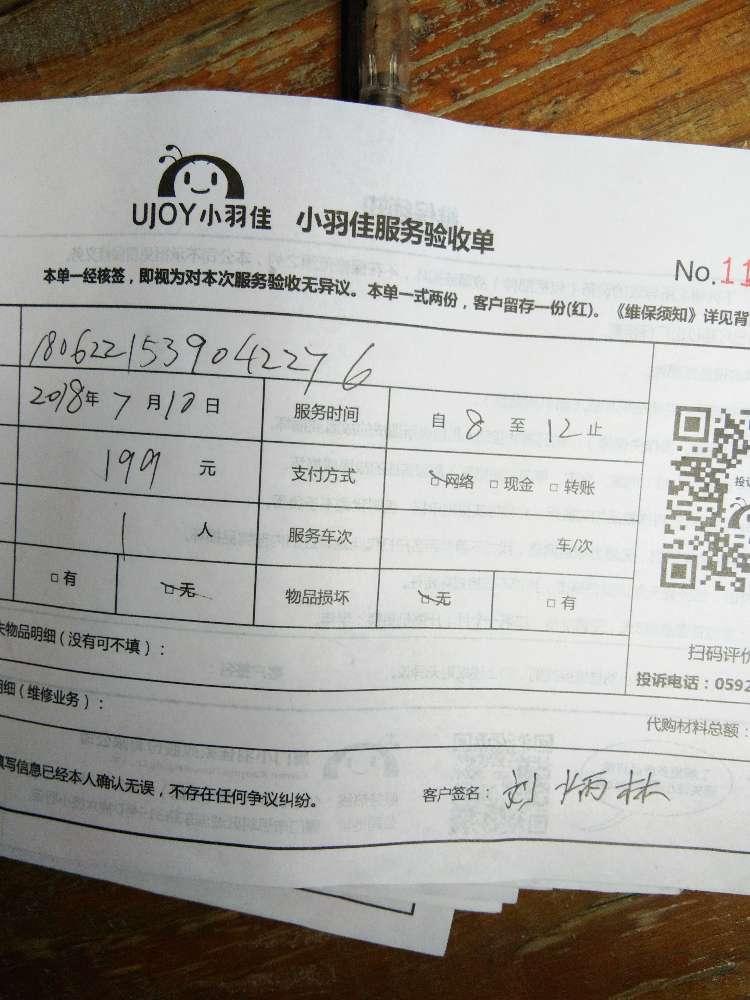 UJOY小羽佳 小羽佳服务验收单
No.11
本单一经核签，即视为对本次服务验收无异议。本单一式两份，客户留存一份(红)。《维保须知》详见背
1806221539042276
2018年7月10日 服务时间 自8至12止
199元 支付方式 □网络 □现金 □转账
1人 服务车次 车/次
□有 □无 物品损坏 □无 □有
失物品明细（没有可不填）：
扫码评价
投诉电话：0592
明细（维修业务）：
代购材料总额：
填写信息已经本人确认无误，不存在任何争议纠纷。 客户签名：刘炳林